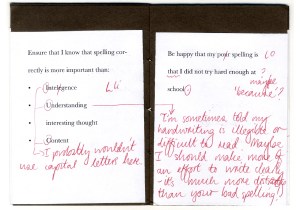 Ensure that I know that spelling cor-
rectly is more important than:
• Intelegence Lli
• Understanding
• interesting thought
• Content
I probably wouldn't
use capital letters here
Be happy that my poor spelling is LO
that I did not try hard enough at ?
school, maybe
'because'?
I'm sometimes told my
handwriting is illegible or
difficult to read. Maybe
I should make more of
an effort to write clearly
- it's much more
than your bad spelling!